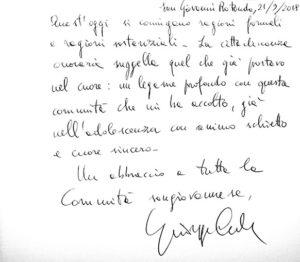 San Giovanni Rotondo, 21/9/2018
Quest'oggi si coniugano ragioni formali
e ragioni sostanziali. La cittadinanza
onoraria suggella quel che già portavo
nel cuore: un legame profondo con questa
comunità che mi ha accolto, già
nell'adolescenza con animo schietto
e cuore sincero.
Un abbraccio a tutta la
Comunità sangiovannese,
Giuseppe Conte